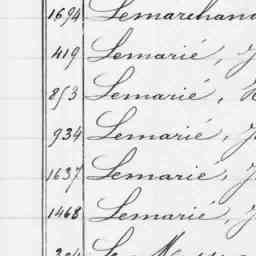 1694 Lemarchand
419 Lemarié, J
853 Lemarié,
934 Lemarié, J
1637 Lemarié, J
1468 Lemarié, J
Le